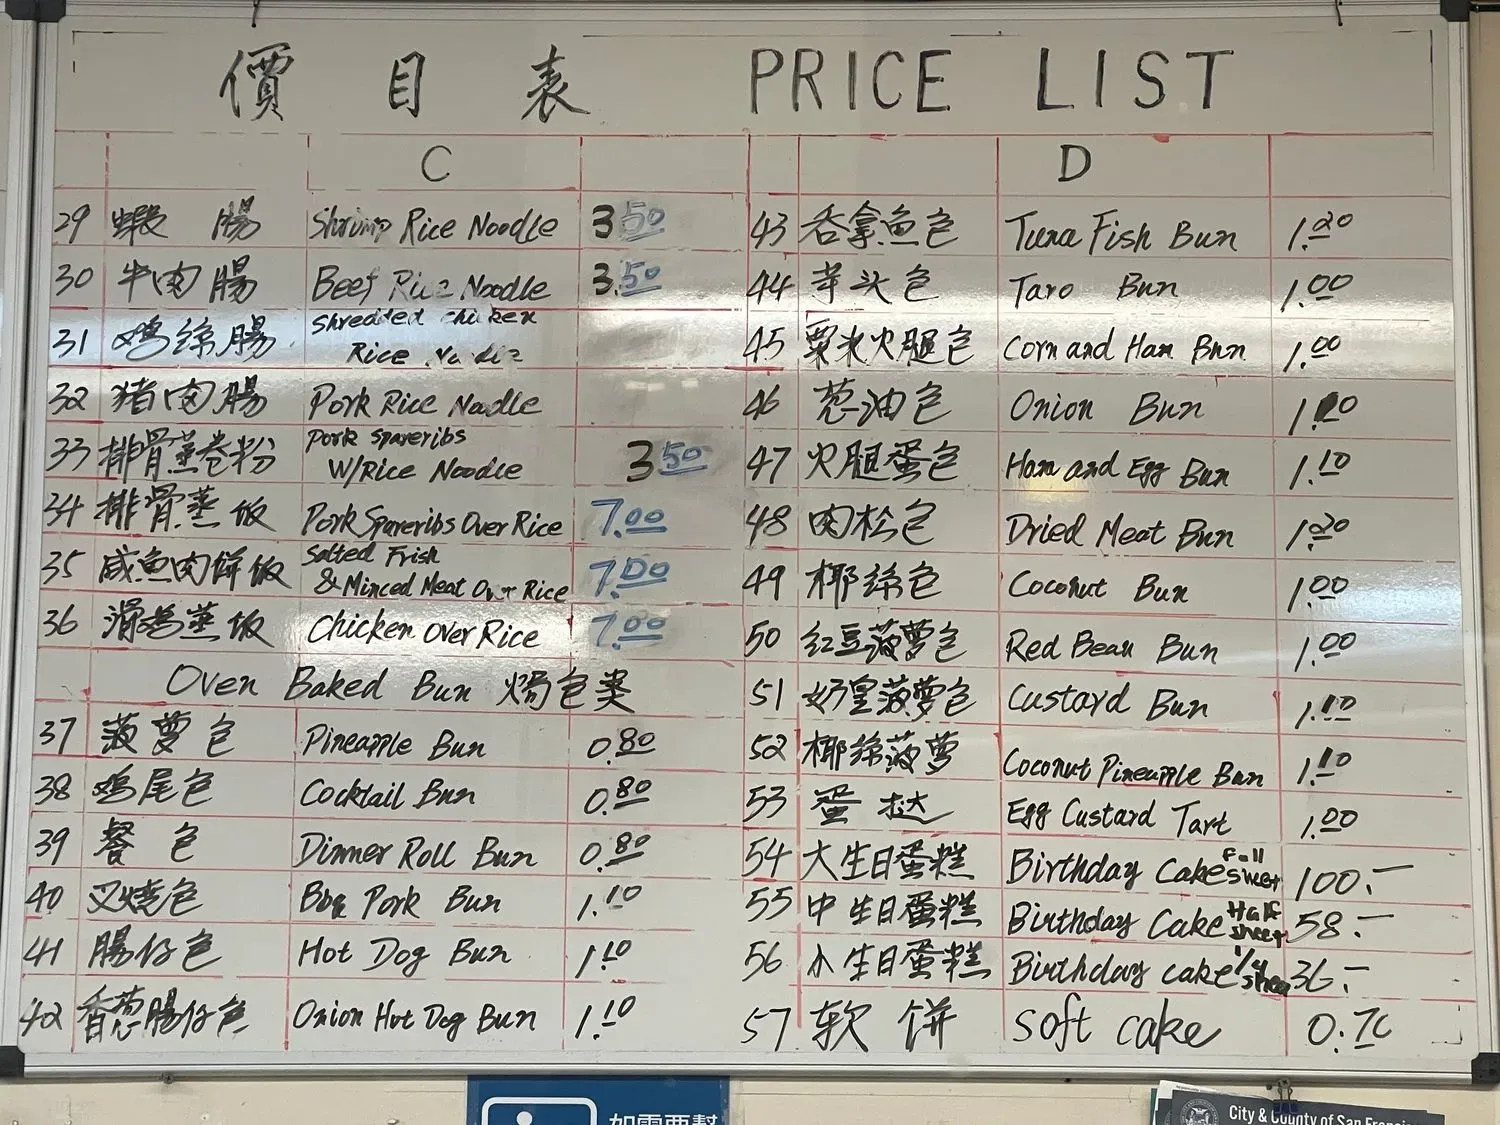 價目表 PRICE LIST
C
29 蝦腸 Shrimp Rice Noodle 3.50
30 牛肉腸 Beef Rice Noodle 3.50
31 鸡絲腸 Shredded chicken
Rice Noodle
32 猪肉腸 Pork Rice Noodle
33 排骨蒸卷粉 Pork Spareribs
W/Rice Noodle 3.50
34 排骨蒸饭 Pork Spareribs Over Rice 7.00
35 咸魚肉餅饭 Salted Frish
& Minced Meat Over Rice 7.00
36 滑鸡蒸饭 Chicken Over Rice 7.00
Oven Baked Bun 焗包类
37 菠萝包 Pineapple Bun 0.80
38 鸡尾包 Cocktail Bun 0.80
39 餐包 Dinner Roll Bun 0.80
40 叉烧包 Bbq Pork Bun 1.10
41 腸仔包 Hot Dog Bun 1.10
42 香葱腸仔包 Onion Hot Dog Bun 1.10
D
43 吞拿魚包 Tuna Fish Bun 1.20
44 芋头包 Taro Bun 1.00
45 粟米火腿包 Corn and Ham Bun 1.00
46 葱油包 Onion Bun
47 火腿蛋包 Ham and Egg Bun 1.10
48 肉松包 Dried Meat Bun 1.20
49 椰絲包 Coconut Bun 1.00
50 红豆菠萝包 Red Bean Bun 1.00
51 奶皇菠萝包 Custard Bun 1.10
52 椰絲菠萝 Coconut Pineapple Bun 1.10
53 蛋挞 Egg Custard Tart 1.00
54 大生日蛋糕 Birthday Cake Full Sheet 100.-
55 中生日蛋糕 Birthday Cake Half Sheet 58.-
56 小生日蛋糕 Birthday cake 1/4 Shee 36.-
57 软饼 Soft cake 0.70
如需要幫
City & County of San Francisco